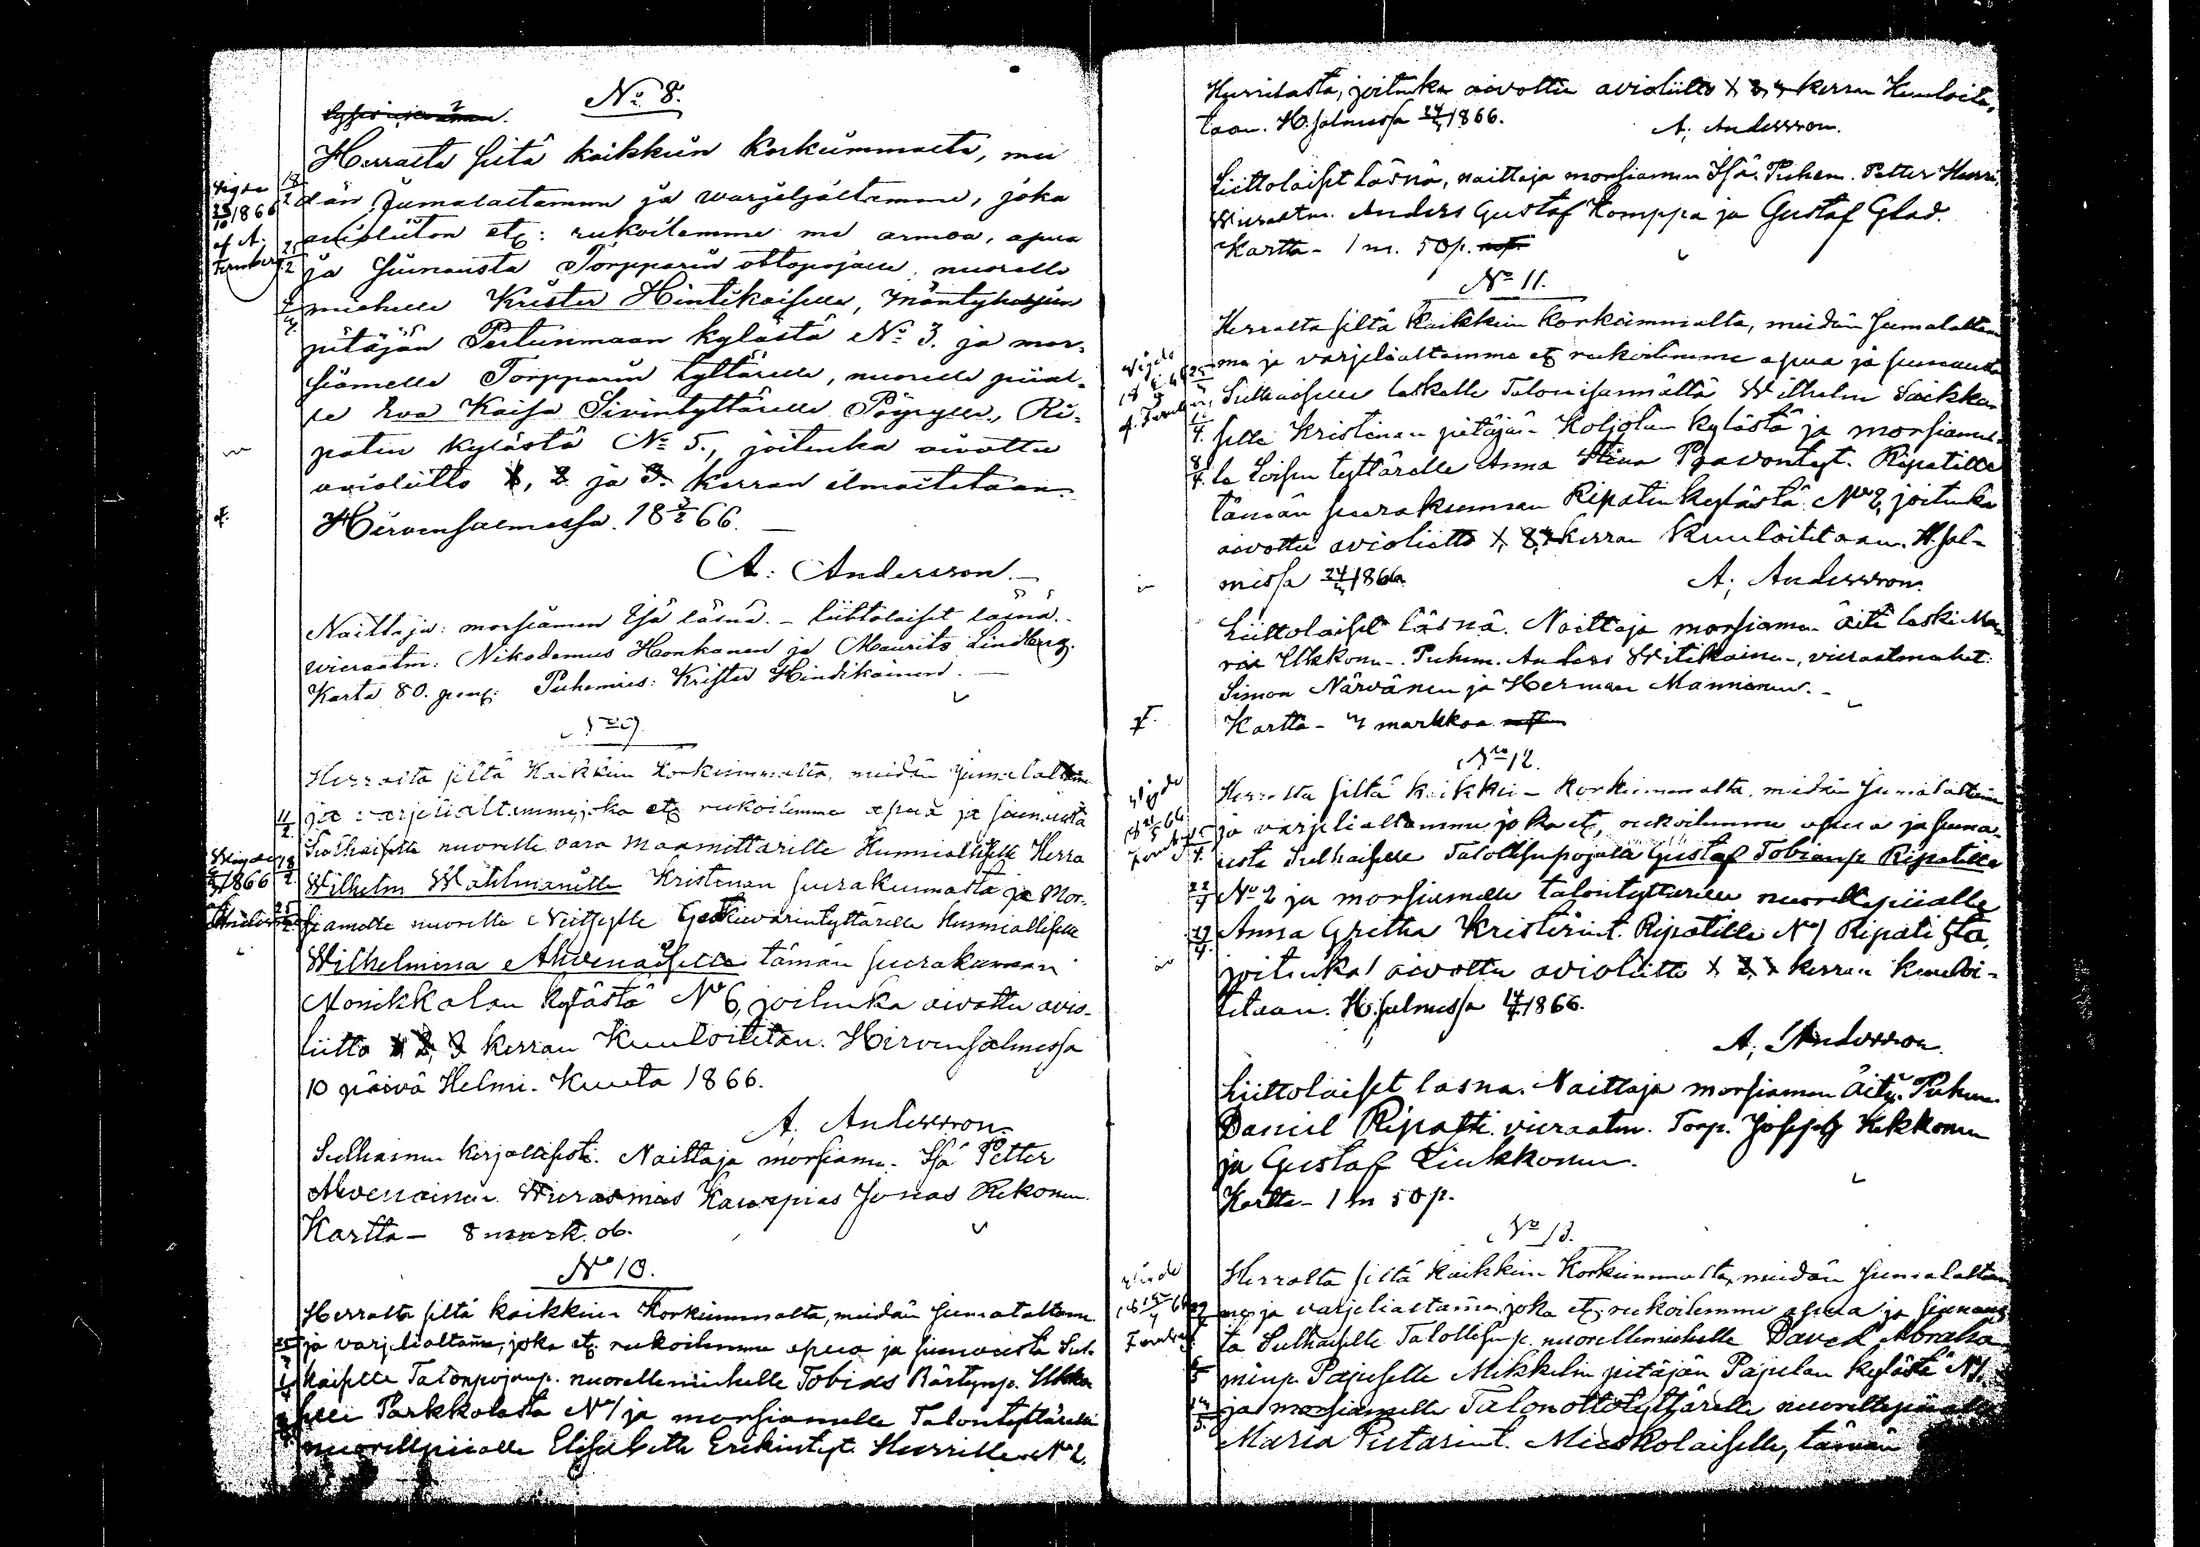 No 8.
Herralta siltä kaikkiin korkiimmalta, mei
dän Jumalaltamme ja warjeljaltamme, joka
avioliiton etc: rukoilemme me armoa, apua
ja siunausta Torpparin ottopojalle, nuorelle
miehelle Krister Hintikaiselle, Mäntyharjun
pitäjän Pertunmaan kylästä No 3. ja mor-
siamelle Torpparin tyttärelle, nuorelle piial-
le Eva Kaisa Sivintyttärelle Pöyrylle, Ri-
patin kylästä No 5., joitenka aivottu
avioliitto 1, 2 ja 3. kerran ilmoitetaan.
Hirvensalmessa. 18 3/2 66.
A: Andersson.
Naittaja: morsiamen Isä läsnä. - liittolaiset läsnä.
vieraatm: Nikodemus Honkanen ja Maurits Lindberg.
Karta 80. pen: Puhemies: Krister Hindikainen.
No 9
Herralta siltä Kaikkiin korkiimmalta, meidän Jumalaltam
ja varjelialtamme, joka etc rukoilemme apua ja siunausta
Sulhaiselle nuorelle vara Maamittarille Kunnialliselle Herra
Wilhelm Wahlmanille Kristinan seurakunnasta ja Mor-
siamelle nuorelle Neitsylle tyttärelle Kunnialliselle
Wilhelmina Ahvenaiselle tämän seurakunnan
Monikkalan kylästä No 6, joitenka aivottu avio-
liitto 1 2, 3 kerran Kuuloitetan. Hirvensalmessa
10 päivä Helmi-Kuuta 1866.
A. Andersson.
Sulhainen kirjallisesti. Naittaja morsiamen Isä Petter
Ahvenainen. Wierasmies Kauppias Jonas Rekonen.
Kartta - 8 mark. ob.
No 10.
Herralta siltä kaikkiin Korkiimmalta, meidän Jumalaltam
ja varjelialtamme, joka etc. rukoilemme apua ja siunausta Sul-
haiselle Talonpojanp. nuorellemiehelle Tobias Bärtynp. Ukko-
selle Parkkolasta No 1 ja morsiamelle Talontyttärelle
nuorellepiialle Elisabetha Erikintyt. Hurrille No 2.
Hurrilasta, joitenka aivottu avioliitto 1 2, 3 kerran Kuuloite-
taan. H.salmessa 24/3 1866.
A; Andersson.
Liittolaiset läsnä, naittaja morsiamen Isä. Puhem. Petter Hurri.
Wieraatm. Anders Gustaf Komppa ja Gustaf Glad.
Kartta - 1 m. 50 p.
No 11.
Herralta siltä Kaikkiin korkiimmalta, meidän Jumalaltam
me ja varjelialtamme etc rukoilemme apua ja siunausta
Sulhaiselle leskelle Talonisännältä Wilhelm Saikko-
selle Kristinan pitäjän Koljolan kylästä ja morsiamel-
le Loisen tyttärelle Anna Stina Paavontyt. Ripatille
tämän seurakunnan Ripatin kylästä No 2, joitenka
aivottu avioliitto 1, 2, 3 kerran kuuloitetaan. H.sal-
messa 24/3 1866.
A; Andersson.
Liittolaiset läsnä. Naittaja morsiamen äiti leski Ma-
ria Ukkonen. Puhem. Anders Witikainen, vieraatmiehet:
Simon Närvänen ja Herman Manninen.
Kartta - 4 markkaa
No 12.
Herralta siltä kaikkiin korkiimmalta, meidän Jumalaltamme
ja varjelialtamme joka etc, rukoilemme apua ja siuna-
usta Sulhaiselle Talollisenpojalle Gustaf Tobianp. Ripatille
No 2 ja morsiamelle talontyttärelle nuorellepiialle
Anna Gretha Kristerint. Ripatille No 1 Ripatista,
joitenka aivottu avioliitto 1 2, 3 kerran kuuloi-
tetaan. H.salmessa 14/4 1866.
A; Andersson.
Liittolaiset läsnä. Naittaja morsiamen Äiti. Puhem.
Daniel Ripatti. vieraatm. Torp. Joseph Kekkonen
ja Gustaf Liukkonen.
Kartta - 1 m 50 p.
No 13.
Herralta siltä kaikkiin Korkiimmalta, meidän Jumalaltam
me ja varjelialtamme joka etc; rukoilemme apua ja siunaus
ta Sulhaiselle Talollisenp. nuorellemiehelle David Abraha
minp. Pajuselle Mikkelin pitäjän Pajulan kylästä No 1.
ja morsiamelle Talonottotyttärelle nuorellepiialle
Maria Pietarint. Mieskolaiselle, tämän